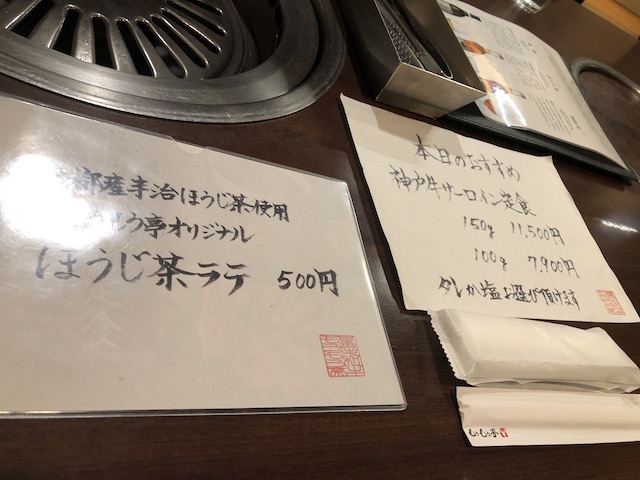 産宇治ほうじ茶使用
う亭オリジナル
ほうじ茶ラテ 500円
本日のおすすめ
神戸牛サーロイン定食
150g 11,500円
100g 7,900円
タレか塩お選び頂けます
もうもう亭